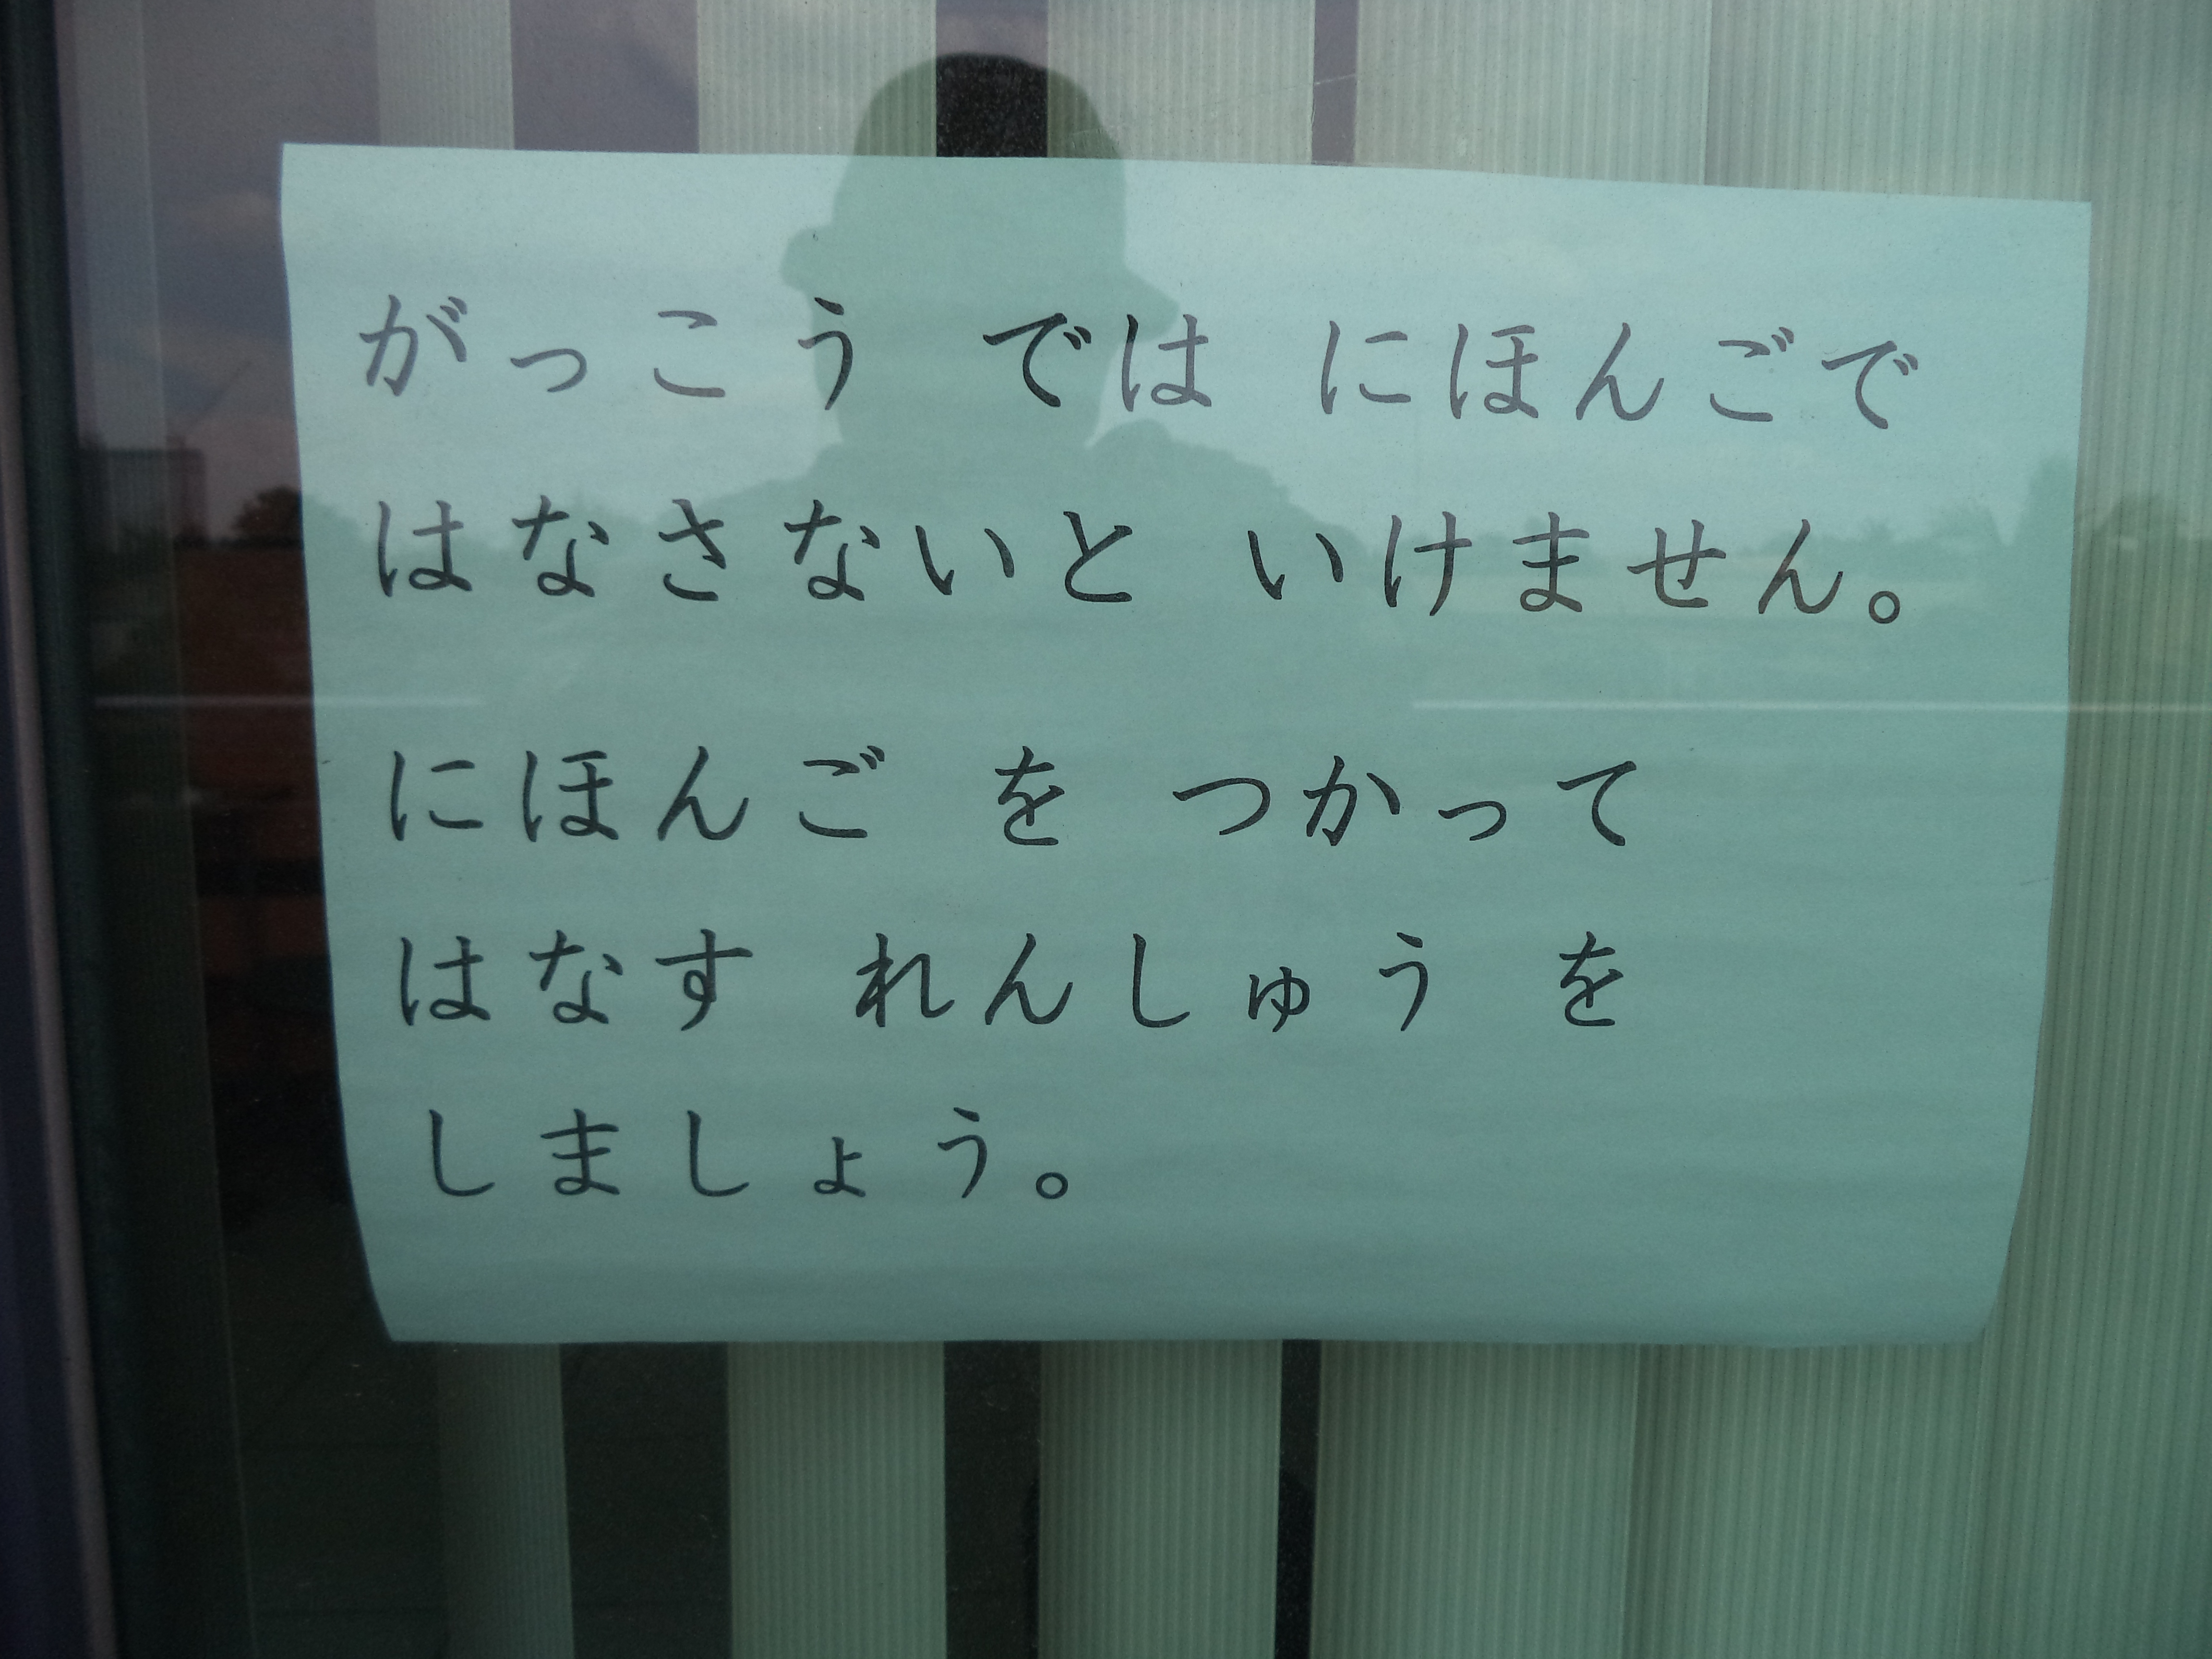 がっこう では にほんごで
はなさないと いけません。
にほんご を つかって
はなす れんしゅう を
しましょう。